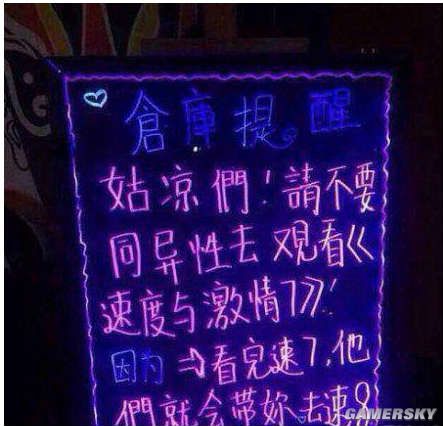 倉庫提醒
姑凉們！請不要
同异性去 观看《
速度与激情7》！
因为⇒看完速7，他
們就会带妳去速8
GAMERSKY